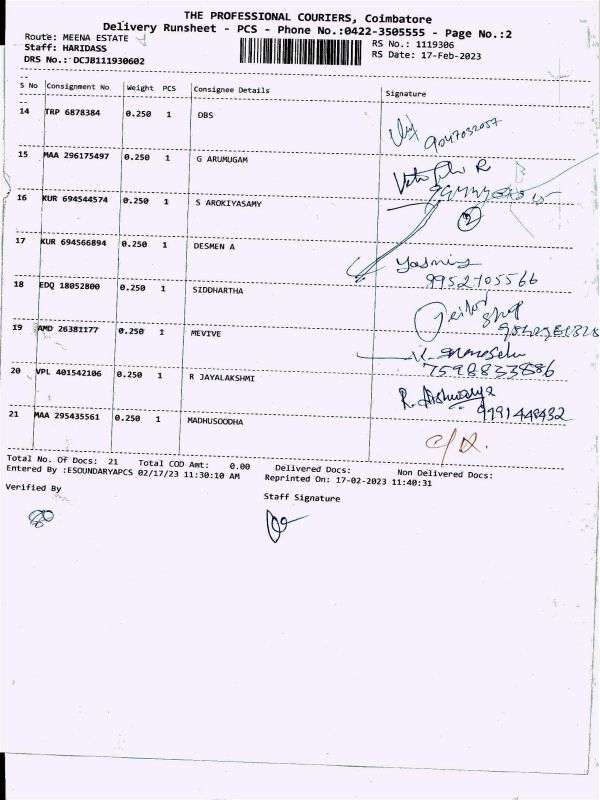 THE PROFESSIONAL COURIERS, Coimbatore
Delivery Runsheet - PCS - Phone No.:0422-3505555 - Page No.:2
Route: MEENA ESTATE
RS No.: 1119306
Staff: HARIDASS
RS Date: 17-Feb-2023
DRS No.: DCJB111930602
S No Consignment No Weight PCS Consignee Details Signature
14 TRP 6878384 0.250 1 DBS
9047032057
15 MAA 296175497 0.250 1 G ARUMUGAM
R
16 KUR 694544574 0.250 1 S AROKIYASAMY
2
17 KUR 694566894 0.250 1 DESMEN A
Yasmin
9952705566
18 EDQ 18052800 0.250 1 SIDDHARTHA
19 AMD 26381177 0.250 1 MEVIVE
7598833886
20 VPL 401542106 0.250 1 R JAYALAKSHMI
R. Aishwarya
9791448432
21 MAA 295435561 0.250 1 MADHUSOODHA
Total No. Of Docs: 21 Total COD Amt: 0.00 Delivered Docs: Non Delivered Docs:
Entered By :ESOUNDARYAPCS 02/17/23 11:30:10 AM Reprinted On: 17-02-2023 11:40:31
Verified By
Staff Signature